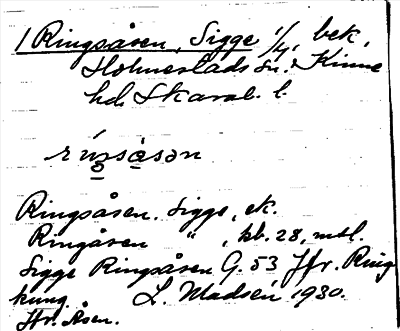 1 Ringsåsen, Sigge 1/4, bek.
Holmestads sn. Kinne
hd. Skarab. l.
Ringsåsen. Sigge, ek.
Ringåsen " , kb. 28, mtl.
Sigge Ringsåsen G. 53 Jfr. Ring
kung L. Madsén 1930.
Jfr. Åsen.